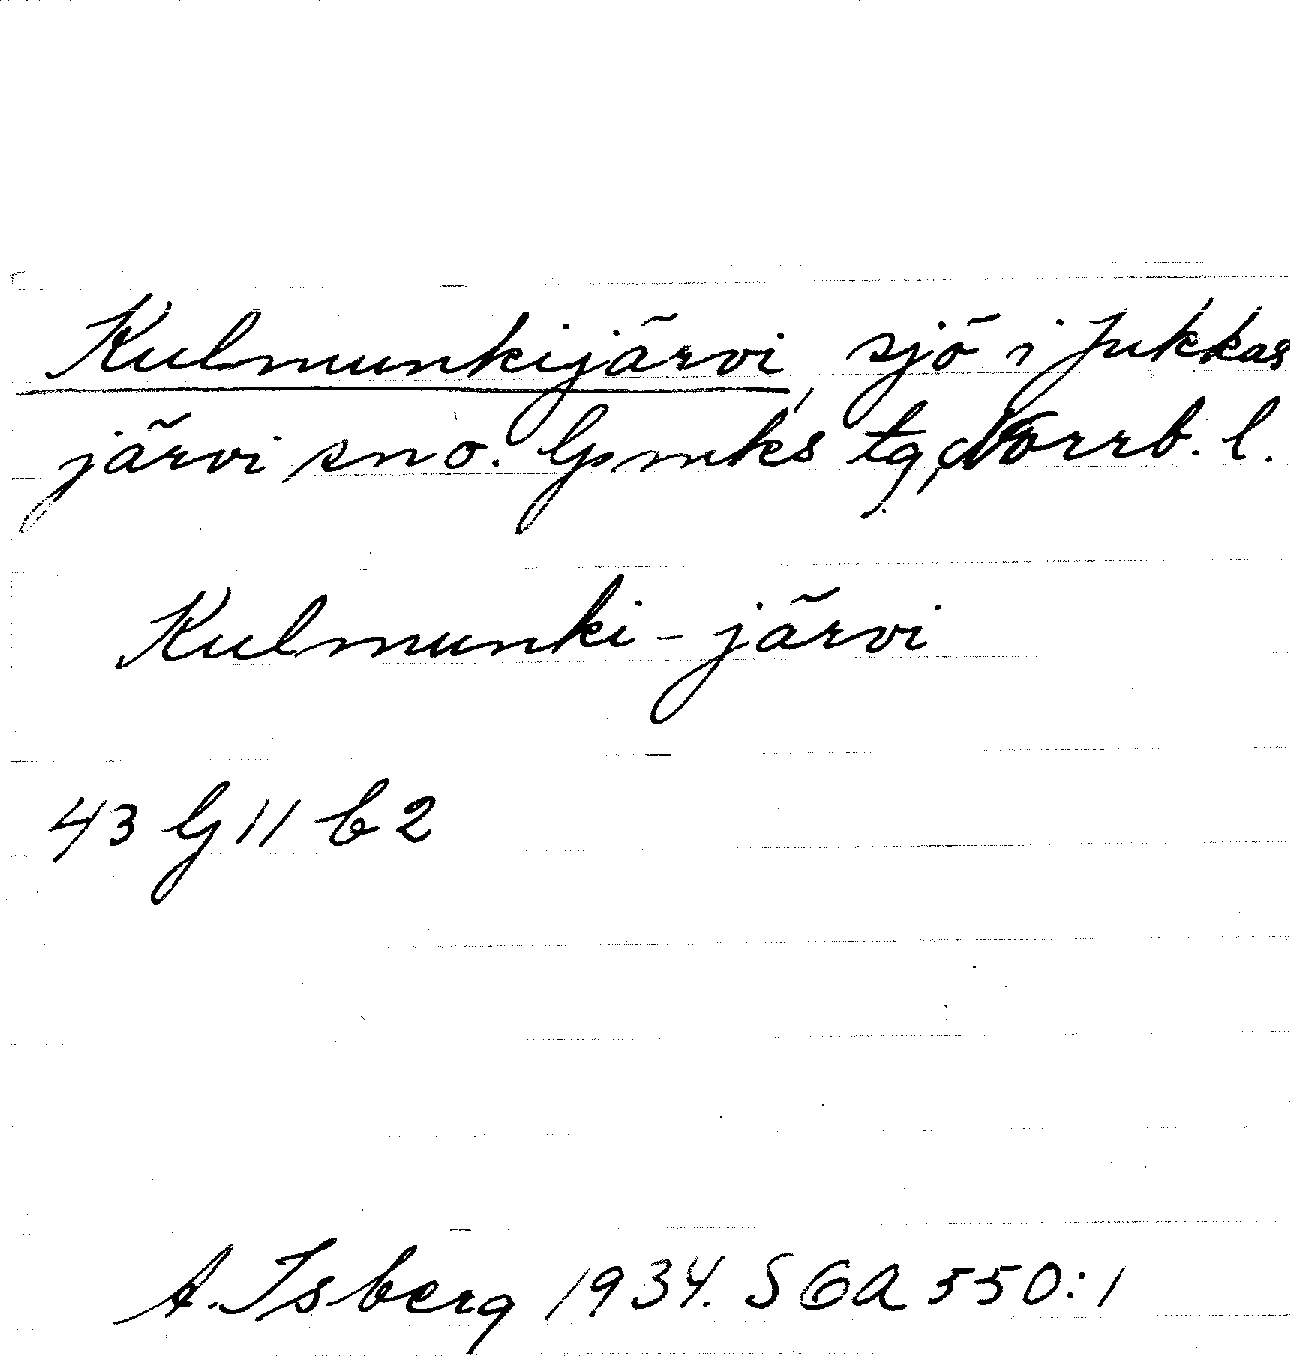 Kulmunkijärvi, sjö i Jukkas
järvi sno. Gpmks tg, Norrb. l.
Kulmunki - järvi
43 G 11 b 2
A. Isberg 1934. SGA 550:1